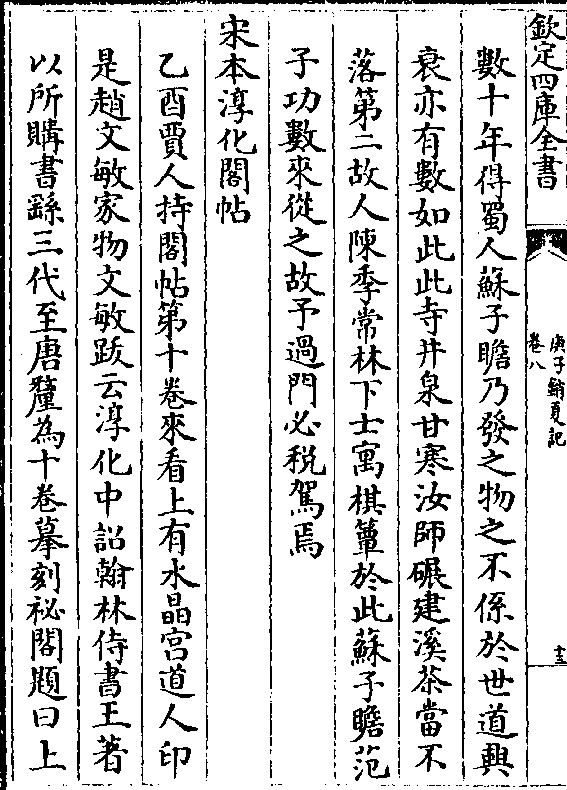 欽定四庫全書
庚子銷夏記
卷八
十三
數十年得蜀人蘇子瞻乃發之物之不係於世道興
衰亦有數如此此寺井泉甘寒汝師碾建溪茶當不
落第二故人陳季常林下士寓棋簟於此蘇子瞻范
子功數來從之故予過門必稅駕焉
宋本淳化閣帖
乙酉賈人持閣帖第十卷來看上有水晶宮道人印
是趙文敏家物文敏跋云淳化中詔翰林侍書王著
以所購書繇三代至唐釐為十卷摹刻祕閣題曰上